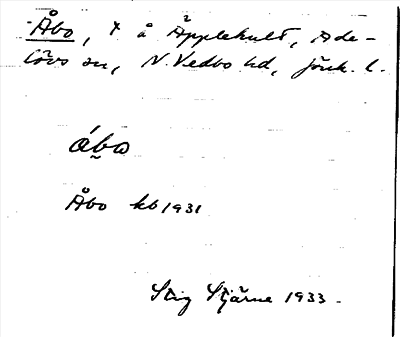 Åbo, + å Äpplehult, Ade-
lövs sn, N. Vedbo hd, Jönk. l.
åba
Åbo kb 1931
Stig Stjärne 1933.